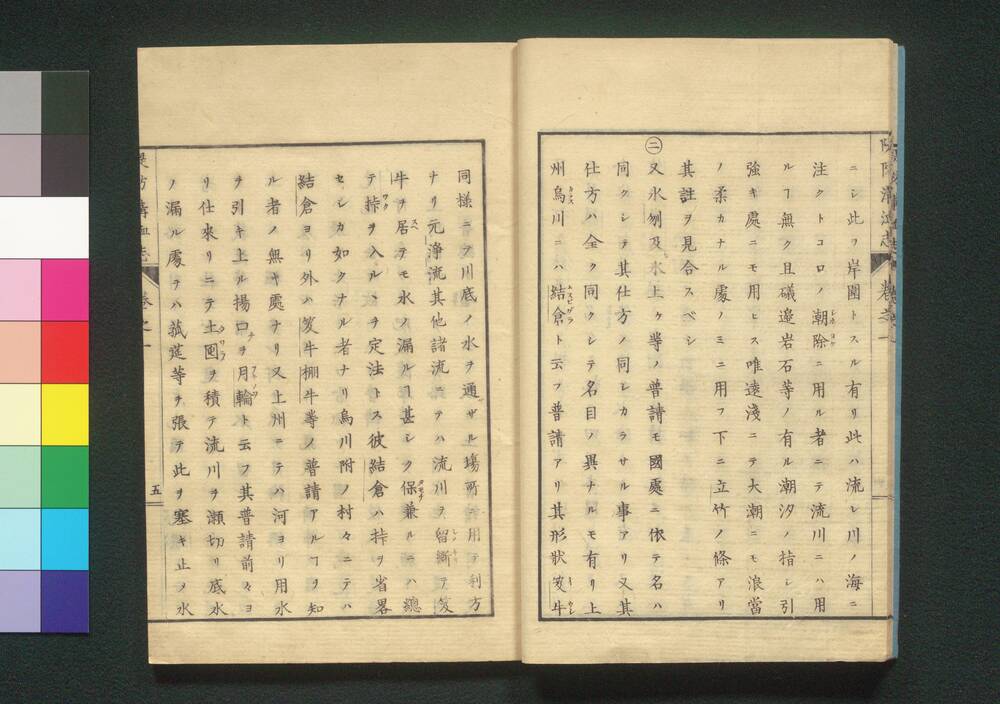 ニシ此ヲ岸圍トスル有リ此ハ流レ川ノ海ニ
注クトコロノ潮除ニ用ル者ニテ流川ニハ用
ルヿ無ク且礒邉岩石等ノ有ル潮汐ノ指シ引
強キ處ニモ用ヒス唯遠淺ニテ大潮ニモ浪當
ノ柔カナル處ノミニ用フ下ニ立竹ノ條アリ
其註ヲ見合スベシ
㊁又水刎及水上ケ等ノ普請モ國處ニ依テ名ハ
同クシテ其仕方ノ同レカラサル事アリ又其
仕方ハ全ク同クシテ名目ノ異ナルモ有リ上
州烏川ニハ結倉ト云フ普請アリ其形狀笈牛
同様ニテ川底ノ水ヲ通サル塲所ニ用テ利方
ナリ元浄流其他諸流ニテハ流川ヲ留斷テ笈
牛ヲ居テモ水ノ漏ルヿ甚シク保兼ルニハ總
テ桛ヲ入ルヽヲ定法トス彼結倉ハ桛ヲ省畧
セシカ如クナル者ナリ烏川附ノ村々ニテハ
結倉ヨリ外ハ笈牛棚牛等ノ普請アルヿヲ知
ル者ノ無キ處ナリ又上州ニテハ河ヨリ用水
ヲ引キ上ル揚口ヲ月輪ト云フ其普請前々ヨ
リ仕來リニテ土俵ヲ積テ流川ヲ瀬切リ底水
ノ漏ル處テハ菰莚等ヲ張テ此ヲ塞キ止メ水
卷之一
五